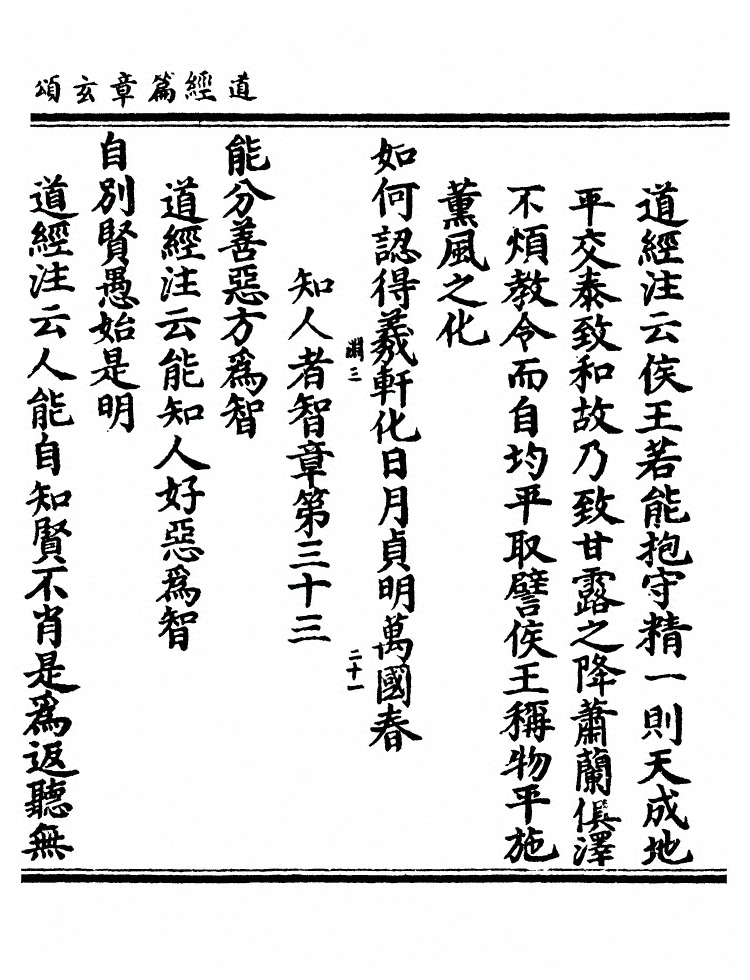 道經篇章玄頌
道經注云侯王若能抱守精一則天成地
平交泰致和故乃致甘露之降蕭蘭俱澤
不煩教令而自均平取譬侯王稱物平施
薰風之化
如何認得羲軒化日月貞明萬國春
淵三
二十一
知人者智章第三十三
能分善惡方爲智
道經注云能知人好惡爲智
自別賢愚始是明
道經注云人能自知賢不肖是爲返聽無